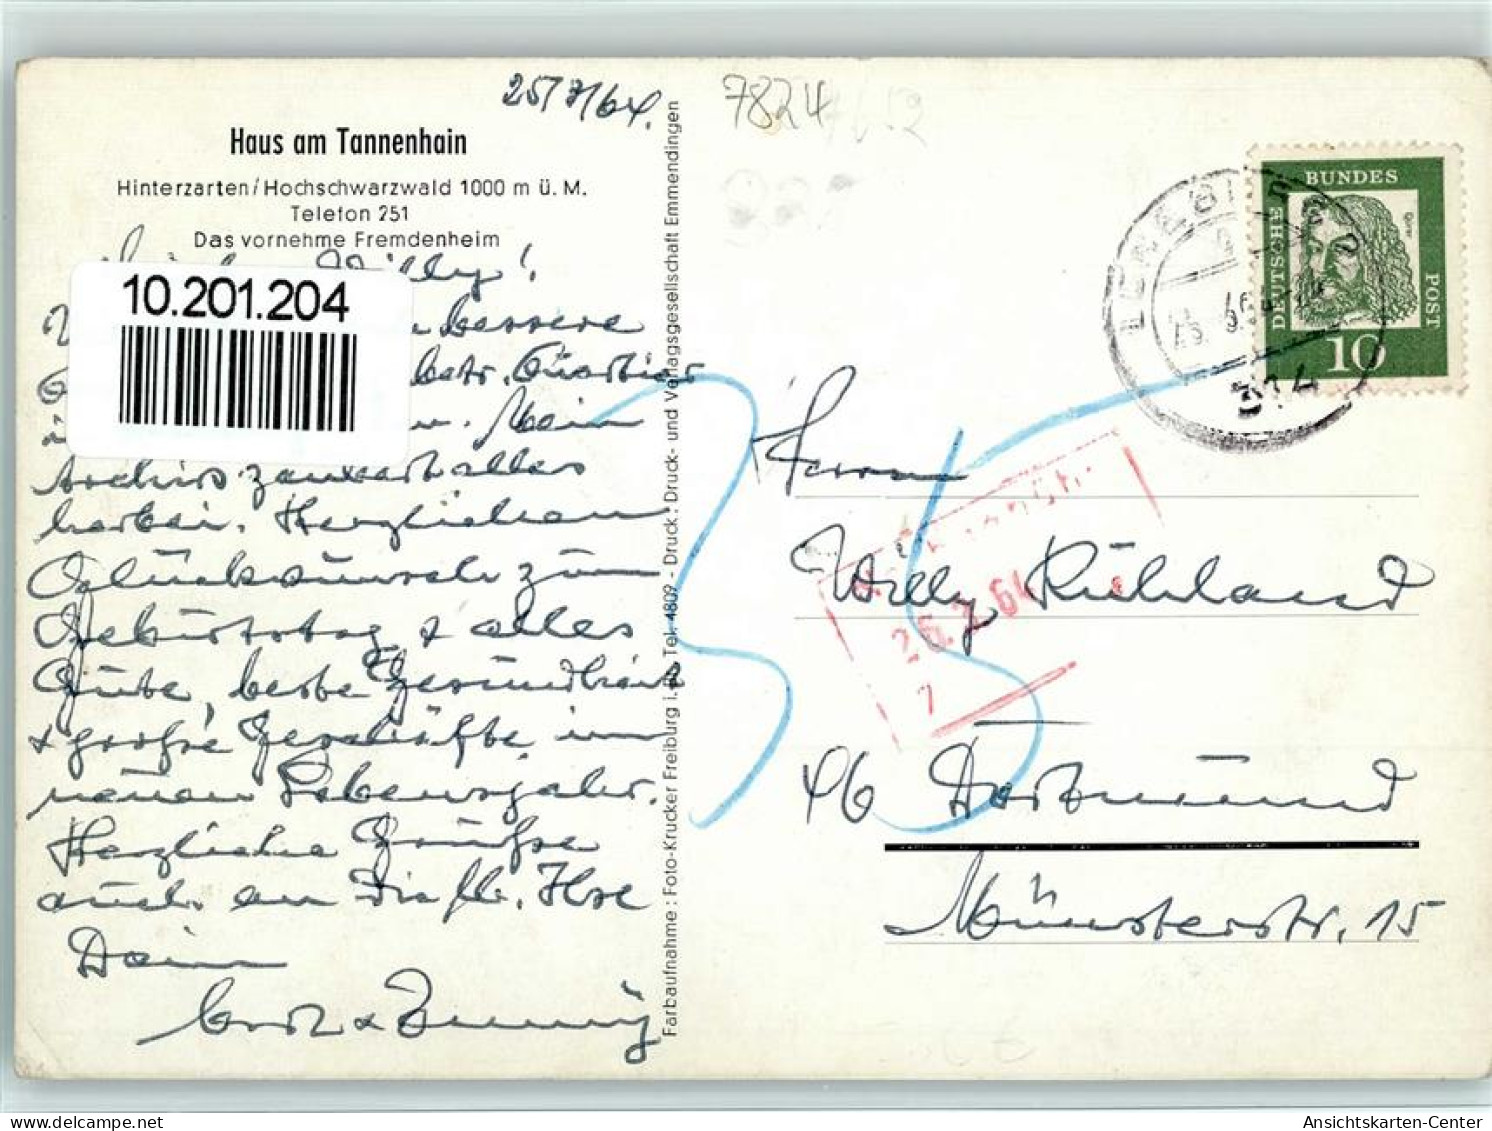 25/7/64.
7824
Haus am Tannenhain
Hinterzarten/Hochschwarzwald 1000 m ü. M.
Telefon 251
Das vornehme Fremdenheim
Willy!
10.201.204
bessere
betr. Quartier
Mein
alles
herbei. Herzlichen
Glückwunsch zum
Geburtstag & alles
Gute, beste Gesundheit
& große Geschäfte im
neuen Lebensjahr.
Herzliche Grüße
auch an Ihre
Dein
Farbaufnahme: Foto-Krucker Freiburg i. Br. Tel. 4809 - Druck: Druck- und Verlagsgesellschaft Emmendingen
DEUTSCHE
BUNDES
POST
10
35
26.7.64
7
Herrn
Willy Rühland
46 Dortmund
Münsterstr. 15
Ansichtskarten-Center